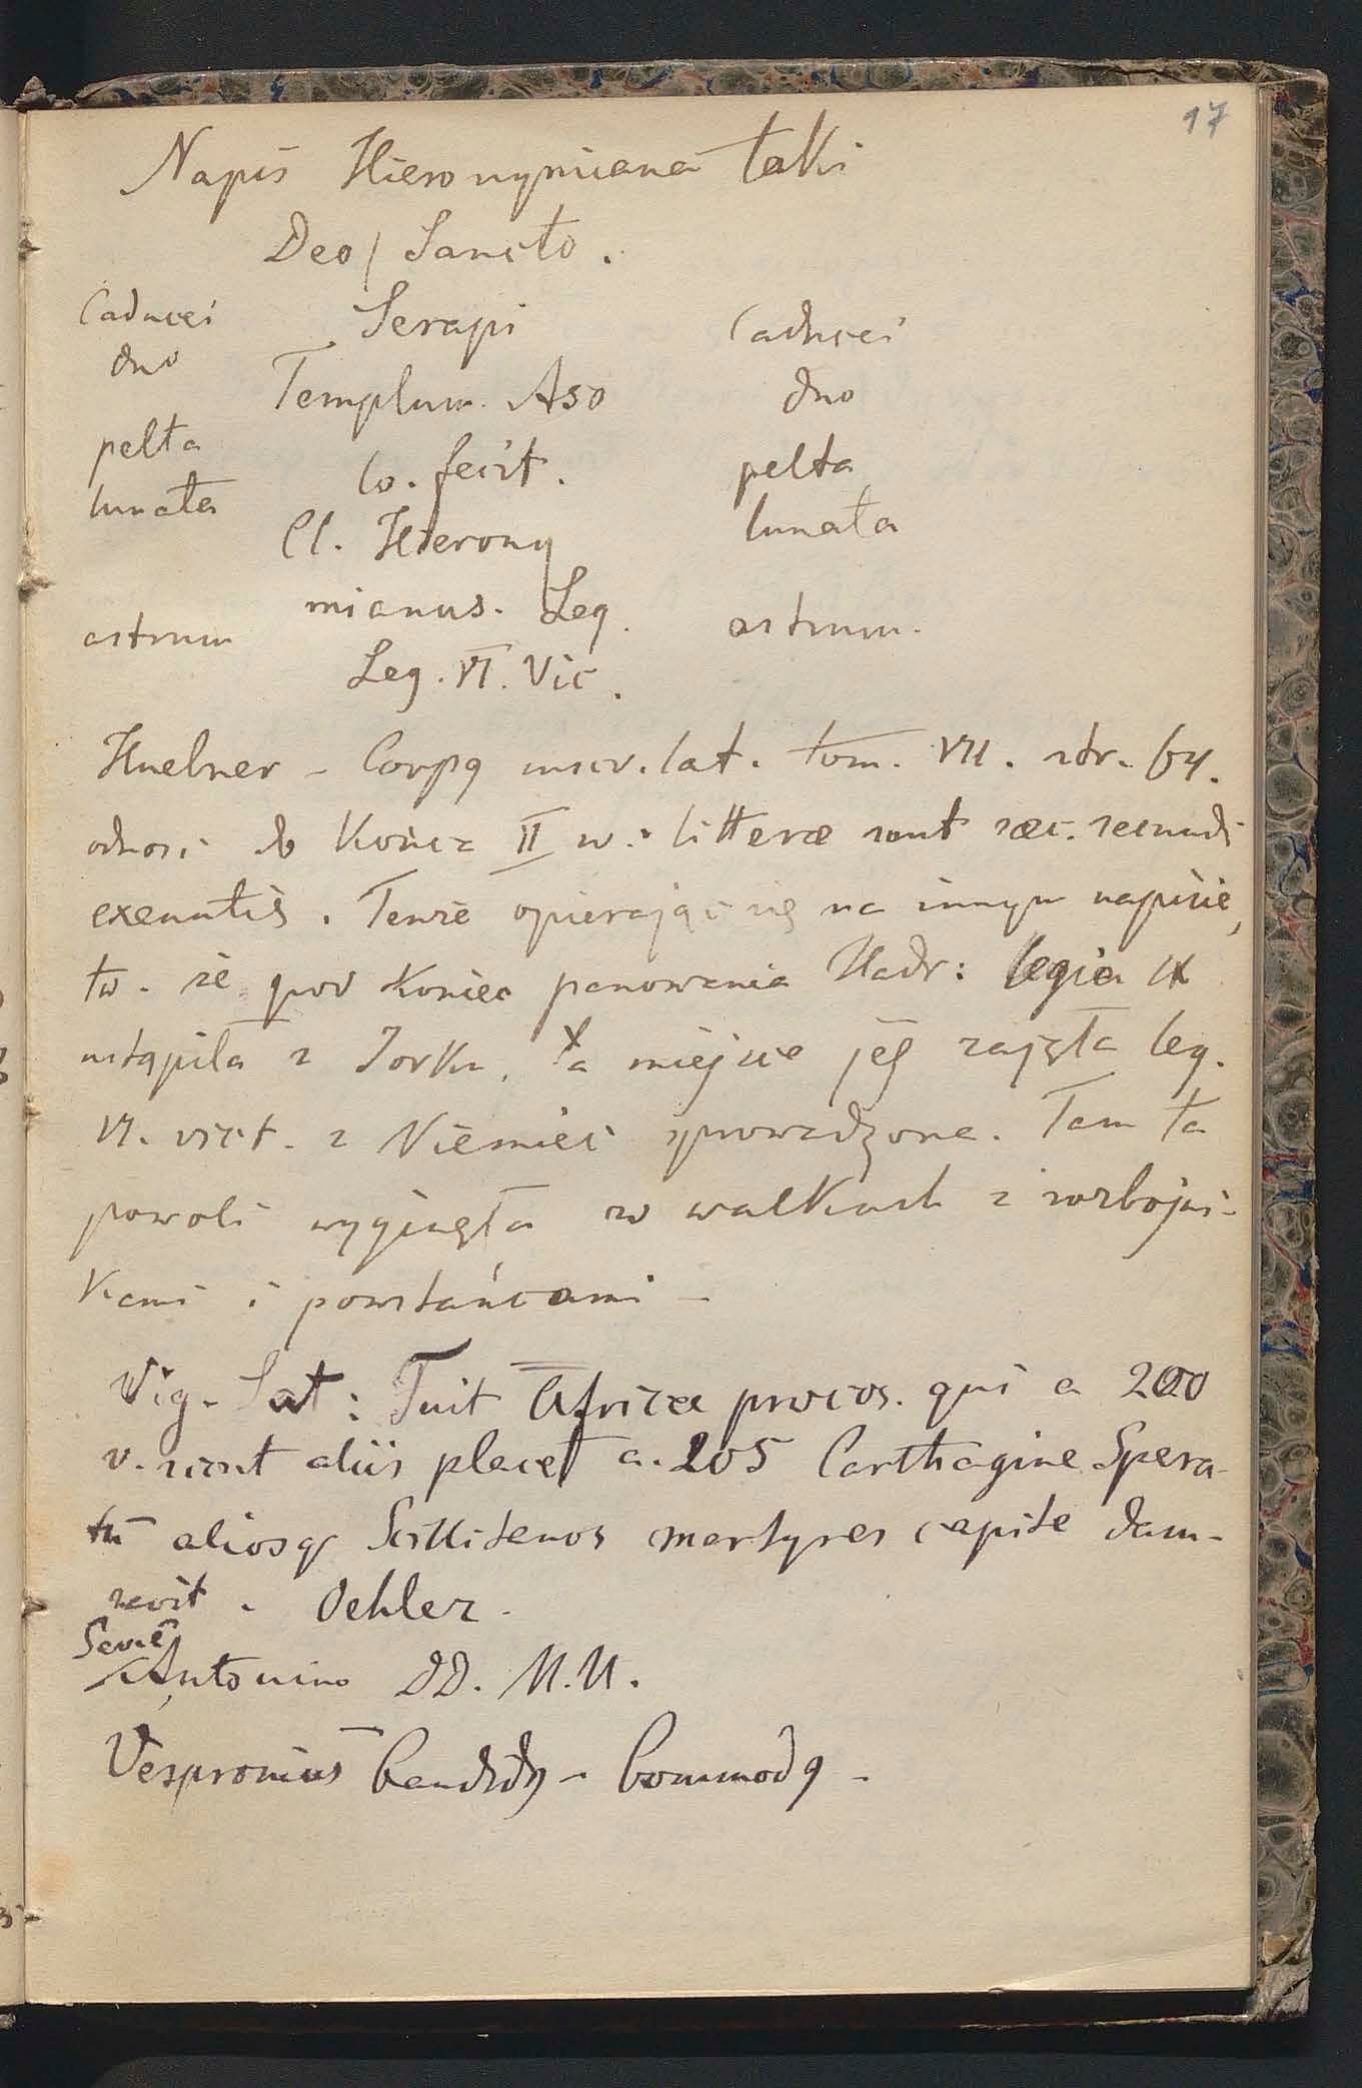 17
Napis Hieronymiana taki
Deo / Sancto .
Caducei Serapi Caducei
duo Templum. Aso duo
pelta lo. fecit. pelta
lunata Cl. Hierony lunata
astrum mianus. Leg. astrum.
Leg. VI. Vic.
Huebner - Corpq inscr. lat. tom. VII. str. 64.
odnosi do końca II w.: litteræ sunt sæc. secundi
exeuntis. Tenże opierając się na innym napisie,
tw. że pod koniec panowania Hadr: legia IX
ustąpiła z Jorku, a miejsce jej zajęła leg.
VI. vict. z Niemiec sprowadzona. Tam ta
powoli wyginęła w walkach z rozbójni-
kami i powstańcami -
Vig. Sat: Fuit Africæ procos. qui a 200
v. sicut aliis placet a. 205 Carthagine Spera-
tū aliosq Scillitanos martyres capite dam-
navit. Oehler.
Antonino DD. N.N.
Vespronius Candidq - Commodq -